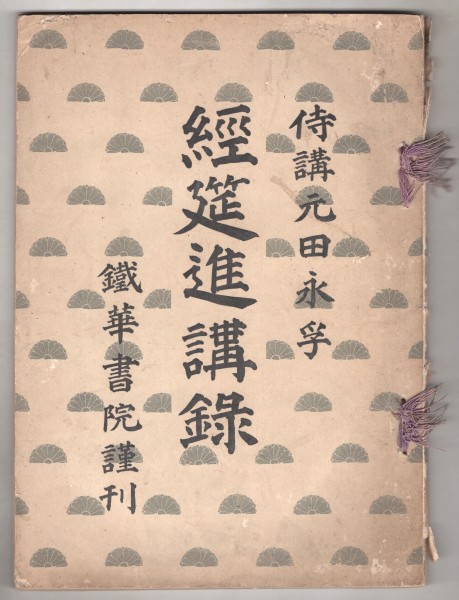 侍講元田永孚
經筵進講錄
鐵華書院謹刊